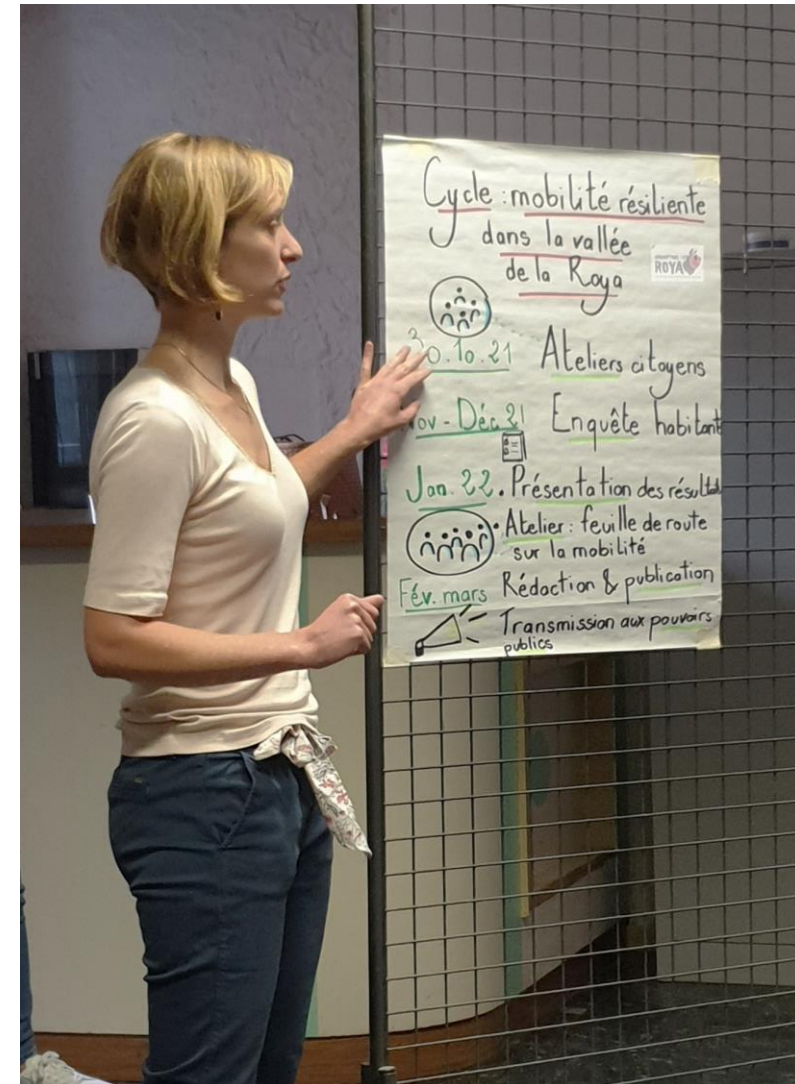 Cycle : mobilité résiliente
dans la vallée
de la Roya
ROYA
30.10.21 Ateliers citoyens
Nov - Déc 21 Enquête habitant
Jan. 22. • Présentation des résultats
• Atelier : feuille de route
sur la mobilité
Fév. mars Rédaction & publication
Transmission aux pouvoirs
publics